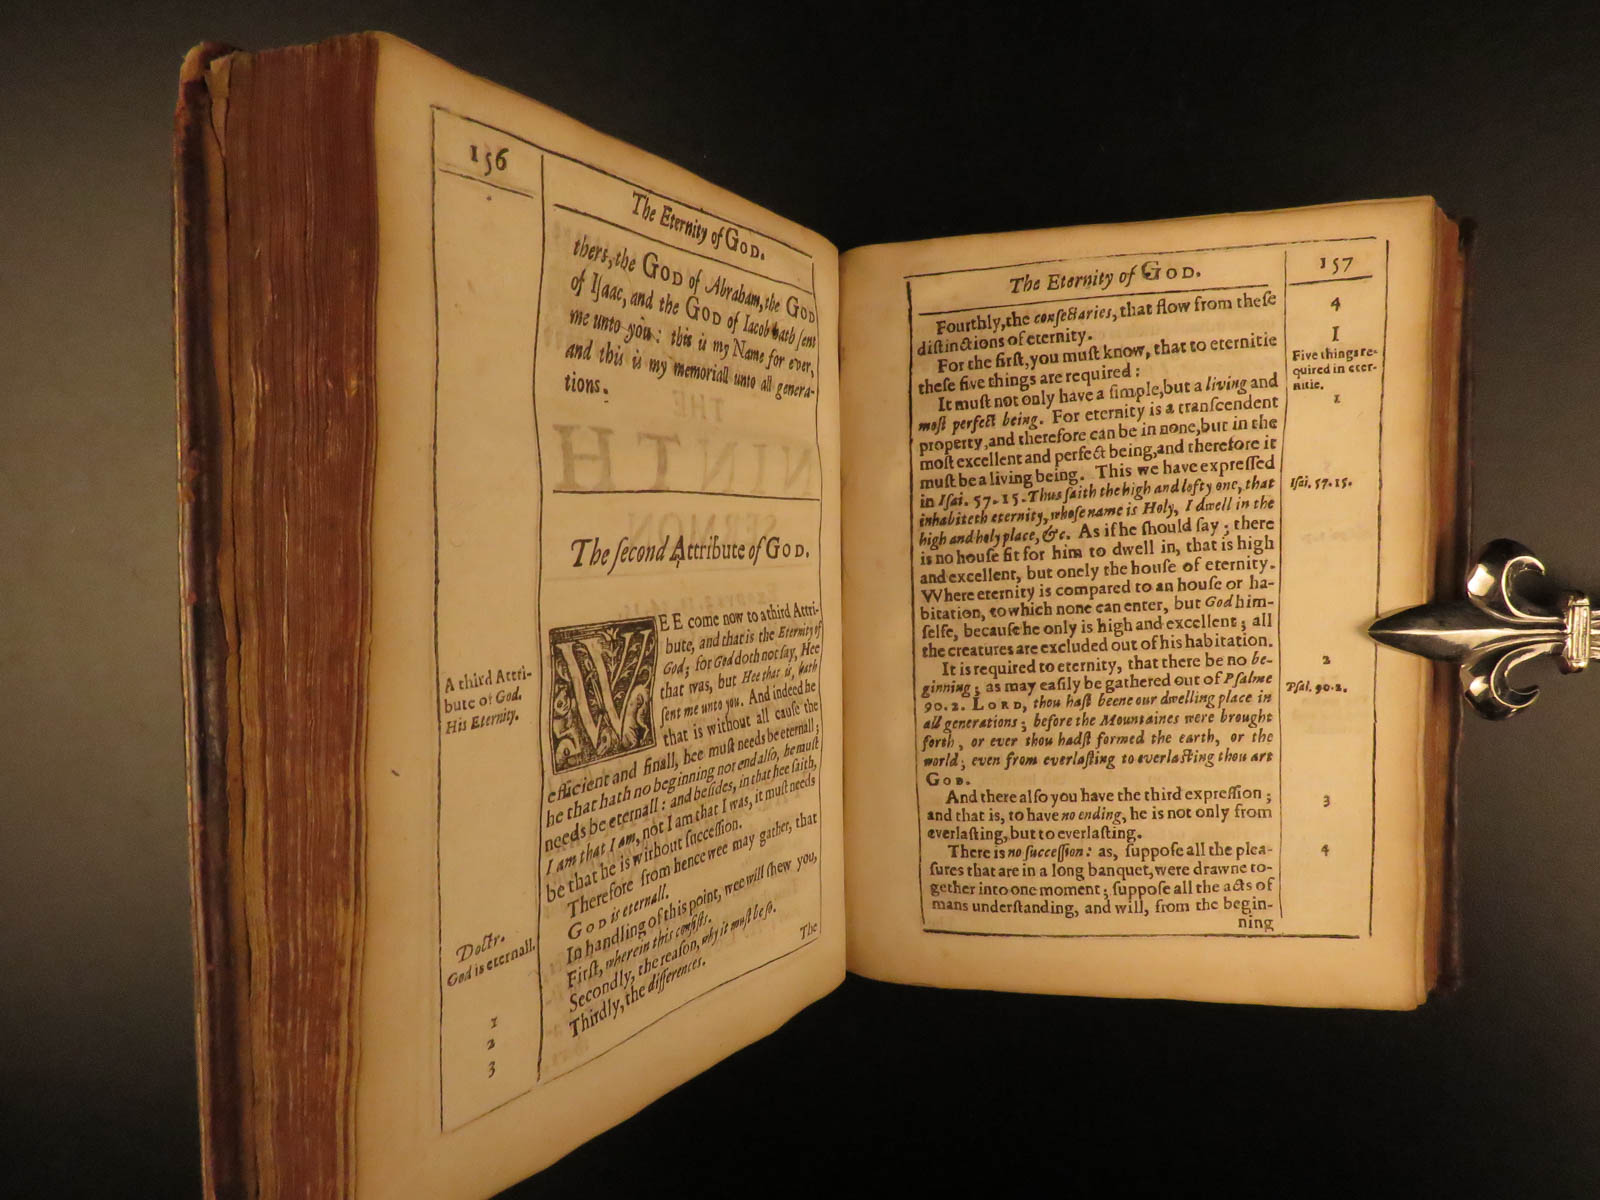 156
The Eternity of GOD.
thers, the GOD of Abraham, the GOD
of Iſaac, and the GOD of Iacob hath ſent
me unto you: this is my Name for ever,
and this is my memoriall unto all genera-
tions.
The ſecond Attribute of GOD.
WEE come now to a third Attri-
bute, and that is the Eternity of
God; for God doth not ſay, Hee
that was, but Hee that is, hath
ſent me unto you. And indeed he
that is without all cauſe the
efficient and finall, hee muſt needs be eternall;
he that hath no beginning nor end alſo, he muſt
needs be eternall: and beſides, in that hee ſaith,
I am that I am, not I am that I was, it muſt needs
be that he is without ſucceſſion.
Therefore from hence wee may gather, that
GOD is eternall.
In handling of this point, wee will ſhew you,
Firſt, wherein this conſiſts.
Secondly, the reaſon, why it muſt be ſo.
Thirdly, the differences.
The
A third Attri-
bute of God.
His Eternity.
Doctr.
God is eternall.
1
2
3
The Eternity of GOD.
157
Fourthly, the conſectaries, that flow from theſe
diſtinctions of eternity.
For the firſt, you muſt know, that to eternitie
theſe five things are required:
It muſt not only have a ſimple, but a living and
moſt perfect being. For eternity is a tranſcendent
property, and therefore can be in none, but in the
moſt excellent and perfect being, and therefore it
muſt be a living being. This we have expreſſed
in Iſai. 57.15. Thus ſaith the high and lofty one, that
inhabiteth eternity, whoſe name is Holy, I dwell in the
high and holy place, &c. As if he ſhould ſay; there
is no houſe fit for him to dwell in, that is high
and excellent, but onely the houſe of eternity.
Where eternity is compared to an houſe or ha-
bitation, to which none can enter, but God him-
ſelfe, becauſe he only is high and excellent; all
the creatures are excluded out of his habitation.
It is required to eternity, that there be no be-
ginning; as may eaſily be gathered out of Pſalme
90.2. LORD, thou haſt beene our dwelling place in
all generations; before the Mountaines were brought
forth, or ever thou hadſt formed the earth, or the
world; even from everlaſting to everlaſting thou art
GOD.
And there alſo you have the third expreſſion;
and that is, to have no ending, he is not only from
everlaſting, but to everlaſting.
There is no ſucceſſion: as, ſuppoſe all the plea-
ſures that are in a long banquet, were drawne to-
gether into one moment; ſuppoſe all the acts of
mans underſtanding, and will, from the begin-
ning
4
I
Five things re-
quired in eter-
nitie.
1
Iſai. 57.15.
2
Pſal. 90.2.
3
4